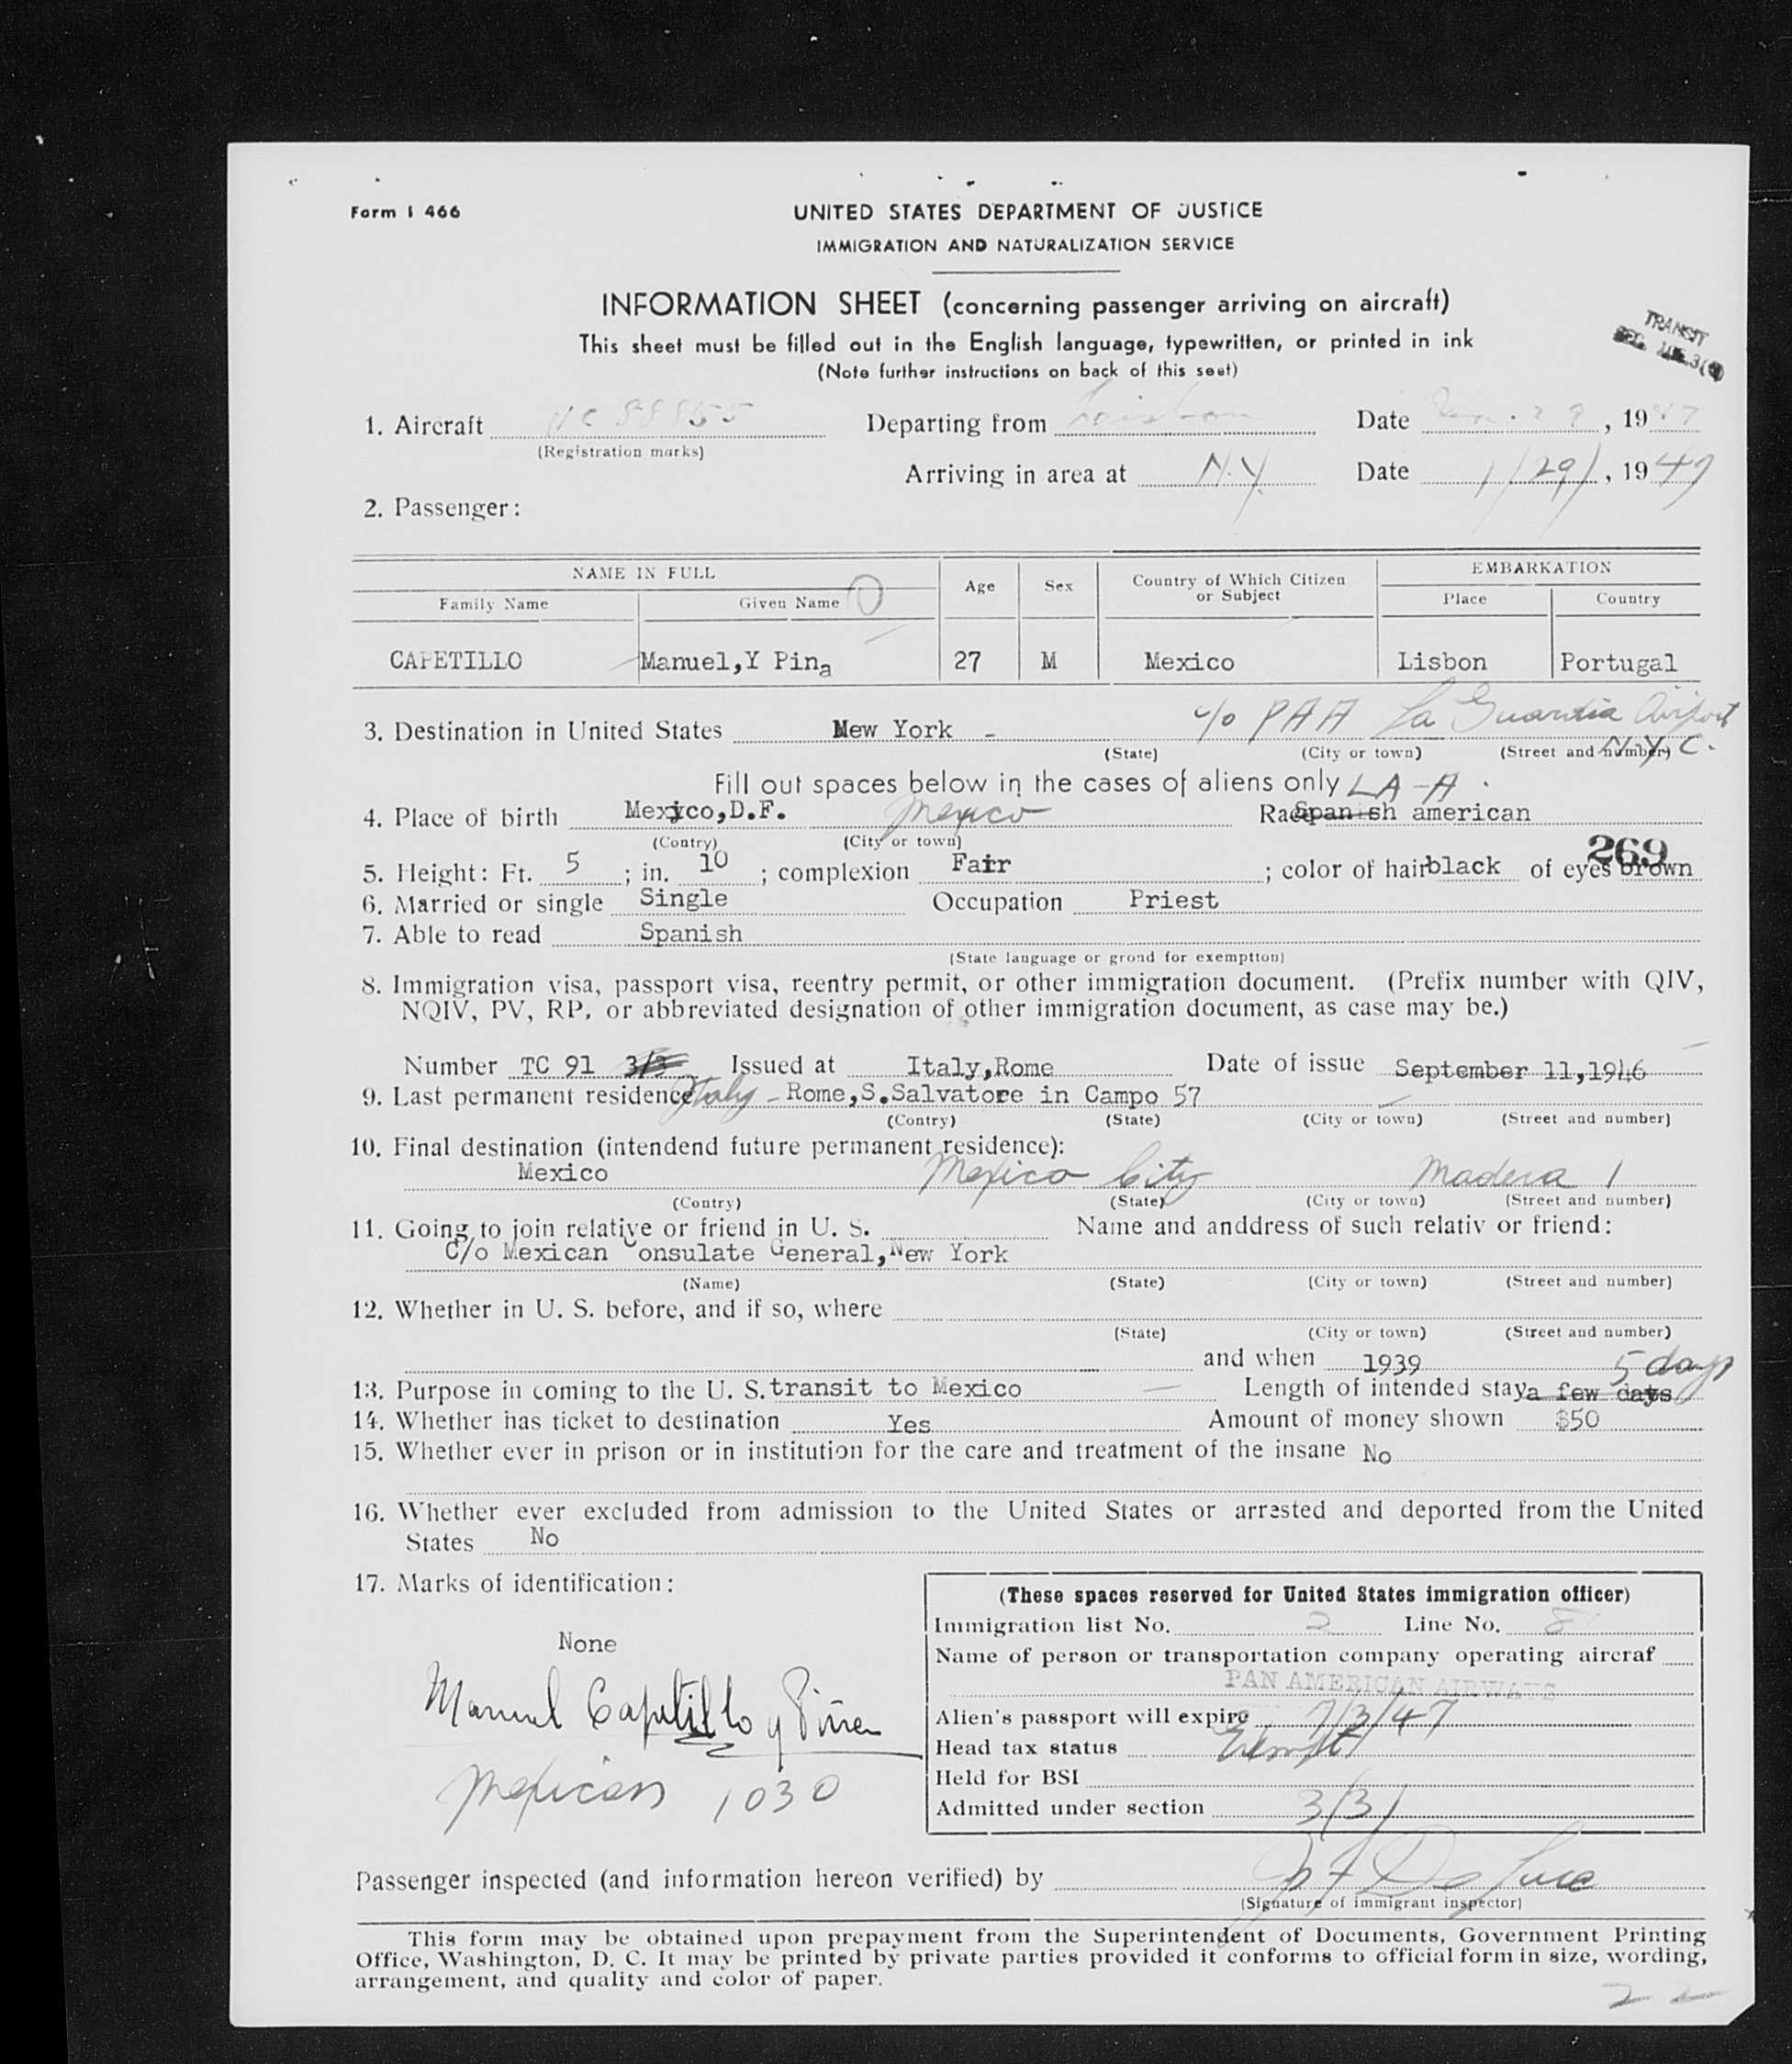 Form I 466
UNITED STATES DEPARTMENT OF JUSTICE
IMMIGRATION AND NATURALIZATION SERVICE
INFORMATION SHEET (concerning passenger arriving on aircraft)
This sheet must be filled out in the English language, typewritten, or printed in ink
(Note further instructions on back of this seet)
TRANSIT
SEC.
1. Aircraft NC 88855 Departing from Lisbon Date 29, 1947
(Registration marks)
Arriving in area at N.Y. Date 1/29/, 1947
2. Passenger:
NAME IN FULL Age Sex Country of Which Citizen or Subject EMBARKATION
Family Name Given Name Place Country
CAPETILLO Manuel,Y Pina 27 M Mexico Lisbon Portugal
3. Destination in United States New York - c/o PAA La Guardia Airport
(State) (City or town) (Street and number) N.Y.C.
Fill out spaces below in the cases of aliens only LA-A.
4. Place of birth Mexico,D.F. Mexico Race Spanish american
(Contry) (City or town)
269
5. Height: Ft. 5; in. 10; complexion Fair; color of hair black of eyes brown
6. Married or single Single Occupation Priest
7. Able to read Spanish
(State language or grond for exemptton)
8. Immigration visa, passport visa, reentry permit, or other immigration document. (Prefix number with QIV,
NQIV, PV, RP, or abbreviated designation of other immigration document, as case may be.)
Number TC 91 3/3 Issued at Italy,Rome Date of issue September 11,1946
9. Last permanent residence Italy - Rome,S.Salvatore in Campo 57
(Contry) (State) (City or town) (Street and number)
10. Final destination (intendend future permanent residence):
Mexico Mexico City Madera 1
(Contry) (State) (City or town) (Street and number)
11. Going to join relative or friend in U. S. Name and anddress of such relativ or friend:
C/o Mexican Consulate General,New York
(Name) (State) (City or town) (Street and number)
12. Whether in U. S. before, and if so, where
(State) (City or town) (Street and number)
and when 1939 5 days
13. Purpose in coming to the U. S. transit to Mexico Length of intended stay a few days
14. Whether has ticket to destination Yes Amount of money shown $50
15. Whether ever in prison or in institution for the care and treatment of the insane No
16. Whether ever excluded from admission to the United States or arrested and deported from the United
States No
17. Marks of identification:
None
Manuel Capetillo y Piña
Mexican 1030
(These spaces reserved for United States immigration officer)
Immigration list No. 2 Line No. 8
Name of person or transportation company operating aircraf
PAN AMERICAN AIRWAYS
Alien's passport will expire 7/3/47
Head tax status Exempt
Held for BSI
Admitted under section 3/3/
Passenger inspected (and information hereon verified) by
(Signature of immigrant inspector)
This form may be obtained upon prepayment from the Superintendent of Documents, Government Printing
Office, Washington, D. C. It may be printed by private parties provided it conforms to official form in size, wording,
arrangement, and quality and color of paper.
22